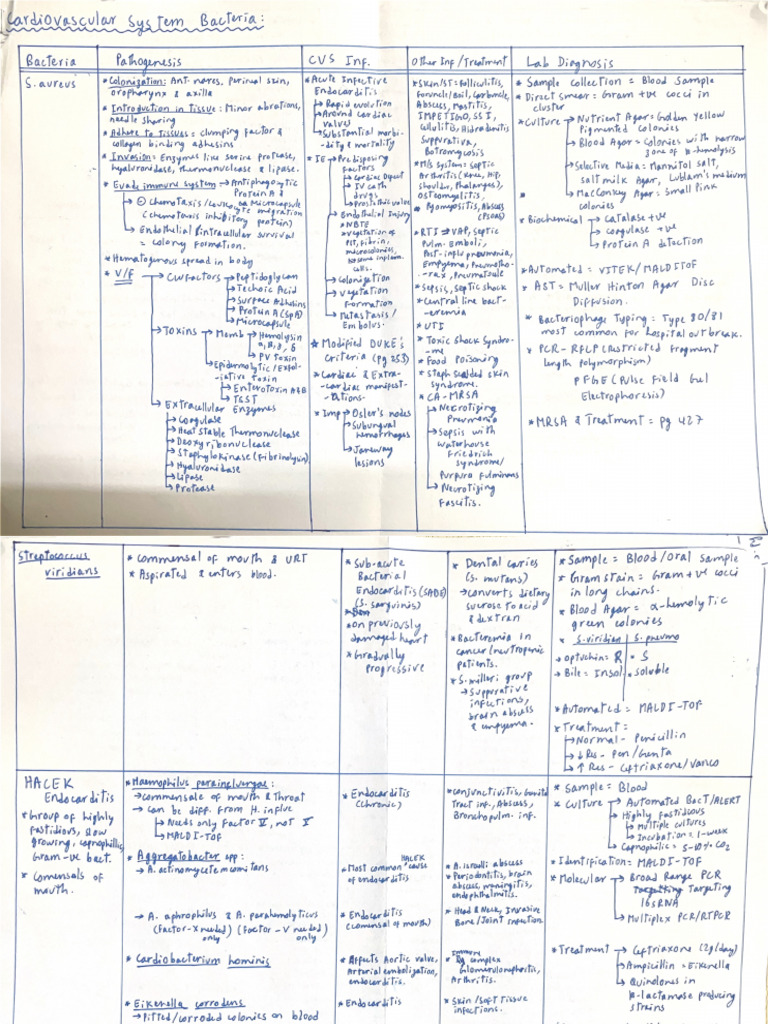 Cardiovascular System Bacteria:
Bacteria
Pathogenesis
CVS Inf.
Other Inf/Treatment
Lab Diagnosis
S.aureus
* Colonization: Ant. nares, perineal skin,
oropharynx & axilla
* Introduction in tissue: Minor abrations,
needle sharing
* Adhere to tissues: clumping factor &
collagen binding adhesins
* Invasion: Enzymes like serine protease,
hyaluronidase, thermonuclease & lipase.
* Evade immune system → Antiphagocytic
Protein A &
Microcapsule
→ ⊖ chemotaxis/leucocyte migration
(chemotaxis inhibitory protein)
→ Endothelial & intracellular survival
= colony formation.
* Hematogenous spread in body
* V/F → CW factors → Peptidoglycan
→ Teichoic Acid
→ Surface Adhesins
→ Protein A (SpA)
→ Microcapsule
→ Toxins → Memb → Hemolysin
α, β, γ, δ
→ PV toxin
→ Epidermolytic/Exfol-
iative toxin
→ Enterotoxin A&B
→ TSST
→ Extracellular Enzymes
→ Coagulase
→ Heat stable Thermonuclease
→ Deoxyribonuclease
→ Staphylokinase (Fibrinolysin)
→ Hyaluronidase
→ Lipase
→ Protease
* Acute Infective
Endocarditis
→ Rapid evolution
→ Around cardiac
valve
→ Substantial morbi-
dity & mortality
* IE → Predisposing
factors
→ Cardiac Defect
→ IV cath
drugs
→ Prosthetic valve
→ Endothelial Injury
→ NBTE
→ Vegetation of
PLT, fibrin,
microcolonies,
cells.
→ Colonization
→ Vegetation
Formation
→ Metastasis/
Embolus.
* Modified DUKE's
Criteria (pg 253)
* Cardiac & Extra-
cardiac manifest-
ations.
* Imp → Osler's nodes
→ Subungual
hemorrhages
→ Janeway
lesions
* Skin/ST = folliculitis,
furuncle/Boil, Carbuncle,
Abscess, Mastitis,
IMPETIGO, SSI,
Cellulitis, Hidradenitis
Suppurativa,
Botromycosis
* M/S system = Septic
Arthritis (Knee, Hip,
shoulder, Phalanges),
Osteomyelitis,
* Pyomyositis, Abscess
(PSOAS)
* RTI → VAP, Septic
Pulm. Emboli,
Post-influ pneumonia,
Empyema, Pneumotho-
-rax, Pneumatocele
* Sepsis, Septic shock
* Central line bact-
eremia
* UTI
* Toxic Shock Syndro-
-me
* Food Poisoning
* Staph scalded skin
syndrome.
* CA-MRSA
→ Necrotizing
Pneumonia
→ Sepsis with
waterhouse
Friedrich
syndrome/
Purpura fulminans
→ Necrotizing
Fascitis.
* Sample collection = Blood Sample
* Direct smear = Gram +ve cocci in
cluster
* Culture → Nutrient Agar = Golden Yellow
Pigmented colonies
→ Blood Agar = Colonies with narrow
zone of β-hemolysis
→ Selective Media = Mannitol salt,
salt milk Agar, Ludlam's medium
→ MacConkey Agar = Small Pink
colonies
* Biochemical → catalase +ve
→ coagulase +ve
→ Protein A detection
* Automated = VITEK/MALDITOF
* AST = Muller Hinton Agar Disc
Diffusion.
* Bacteriophage Typing = Type 80/81
most common for hospital outbreak.
* PCR-RFLP (Restricted fragment
length polymorphism)
PFGE (Pulse Field Gel
Electrophoresis)
* MRSA & Treatment = pg 427
Streptococcus
viridians
* Commensal of mouth & URT
* Aspirated & enters blood.
* Sub-acute
Bacterial
Endocarditis (SABE)
(S. sanguinis)
* On previously
damaged heart
* Gradually
Progressive
* Dental caries
(S. mutans)
→ converts dietary
sucrose to acid
& dextran
* Bacteremia in
cancer/neutropenic
patients.
* S. milleri group
→ Suppurative
infections,
brain abscess
& empyema.
* Sample = Blood/Oral sample
* Gram stain = Gram +ve cocci
in long chains.
* Blood Agar = α-hemolytic
green colonies
* S.viridian | S.pneumo
→ Optochin = R * S
→ Bile = Insol * Soluble
* Automated = MALDI-TOF
* Treatment =
→ Normal - Penicillin
→ ↓Res - Pen/Genta
→ ↑Res - Ceftriaxone/Vanco
HACEK
Endocarditis
* Group of highly
fastidious, slow
growing, capnophilic,
Gram -ve bact.
* Comensals of
mouth.
* Haemophilus parainfluenzae:
→ Commensale of mouth & throat
→ Can be diff. from H. influe
→ Needs only Factor V, not X
→ MALDI-TOF
* Aggregatobacter spp:
→ A. actinomycetemcomitans
→ A. aphrophilus & A. paraphemolyticus
(Factor-X needed) (Factor-V needed)
only only
* Cardiobacterium hominis
* Eikenella corrodens
→ Pitted/corroded colonies on blood
* Endocarditis
(chronic)
* Most common HACEK cause
of endocarditis
* Endocarditis
(Comensal of mouth)
* Affects Aortic valve,
Arterial embolization,
endocarditis.
* Endocarditis
* Conjunctivitis, Genital
Tract inf., Abscess,
Bronchopulm. inf.
* A. israelii abscess
* Periodontitis, brain
abscess, meningitis,
endophthalmitis.
* Head & Neck, Invasive
Bone/Joint infection.
* Immune complex
Glomerulonephritis,
Arthritis.
* Skin/Soft tissue
infections.
* Sample = Blood
* Culture → Automated BacT/ALERT
→ Highly fastidious
→ Multiple cultures
→ Incubation = 1-week
→ Capnophilic = 5-10% CO2
* Identification = MALDI-TOF
* Molecular → Broad Range PCR
Targeting
16srRNA
→ Multiplex PCR/RTPCR
* Treatment → Ceftriaxone (2g/day)
→ Ampicillin = Eikenella
→ Quinolones in
β-lactamase producing
strains